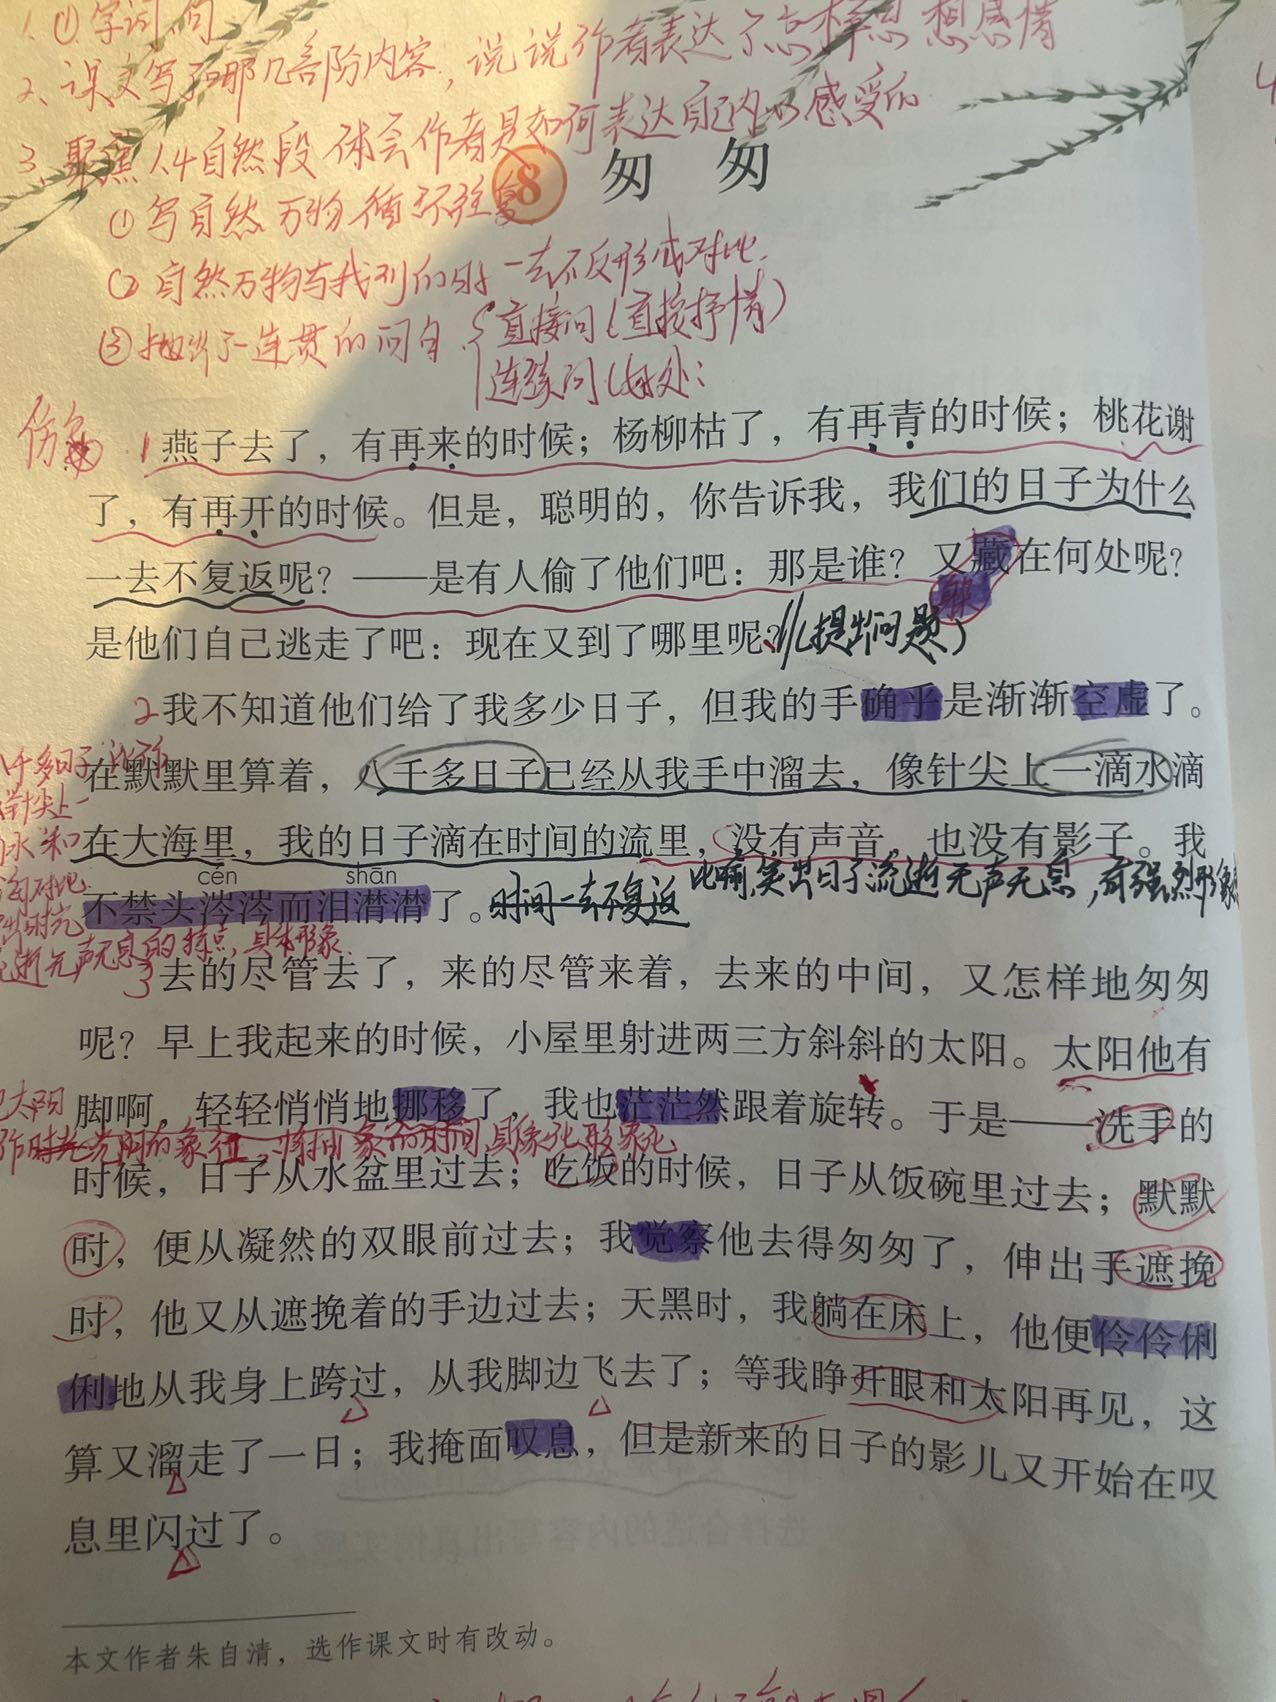 1.①字词句
2、课文写了哪几部分内容，说说作者表达了怎样思想感情
3、聚焦1.4自然段 体会作者是如何表达自己内心感受的
8 匆匆
①写自然万物循环往复
②自然万物与我们的日子一去不反形成对比.
③抛出了一连贯的问句.
直接问(直接抒情)
连续问(好处:
1燕子去了，有再来的时候；杨柳枯了，有再青的时候；桃花谢
了，有再开的时候。但是，聪明的，你告诉我，我们的日子为什么
一去不复返呢？——是有人偷了他们吧：那是谁？又藏在何处呢？
是他们自己逃走了吧：现在又到了哪里呢？//(提出问题)
2我不知道他们给了我多少日子，但我的手确乎是渐渐空虚了。
在默默里算着，八千多日子已经从我手中溜去，像针尖上一滴水滴
在大海里，我的日子滴在时间的流里，没有声音，也没有影子。我
cén shān
不禁头涔涔而泪潸潸了。时间一去不复返
比喻,突出日子流逝无声无息,有强烈形象
逝无声无息的特点,具体形象.
3去的尽管去了，来的尽管来着，去来的中间，又怎样地匆匆
呢？早上我起来的时候，小屋里射进两三方斜斜的太阳。太阳他有
脚啊，轻轻悄悄地挪移了，我也茫茫然跟着旋转。于是——洗手的
太阳
作时光 的象征，将抽象的时间具象化形象化
时候，日子从水盆里过去；吃饭的时候，日子从饭碗里过去；默默
时，便从凝然的双眼前过去；我觉察他去得匆匆了，伸出手遮挽
时，他又从遮挽着的手边过去；天黑时，我躺在床上，他便伶伶俐
俐地从我身上跨过，从我脚边飞去了；等我睁开眼和太阳再见，这
算又溜走了一日；我掩面叹息，但是新来的日子的影儿又开始在叹
息里闪过了。
本文作者朱自清，选作课文时有改动。